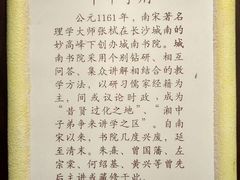 公元1161年，南宋著名
理学大师张栻在长沙城南的
妙高峰下创办城南书院。城
南书院采用个别钻研、相互
问答、集众讲解相结合的教
学方法，以研习儒家经籍为
主，间或议论时政，成为
“昔贤过化之地”、“湘中
子弟争来讲学之区”。自南
宋以来，书院几度兴废，延
至清末。朱熹、曾国藩、左
宗棠、何绍基、黄兴等曾先
后主讲或藏修于此。